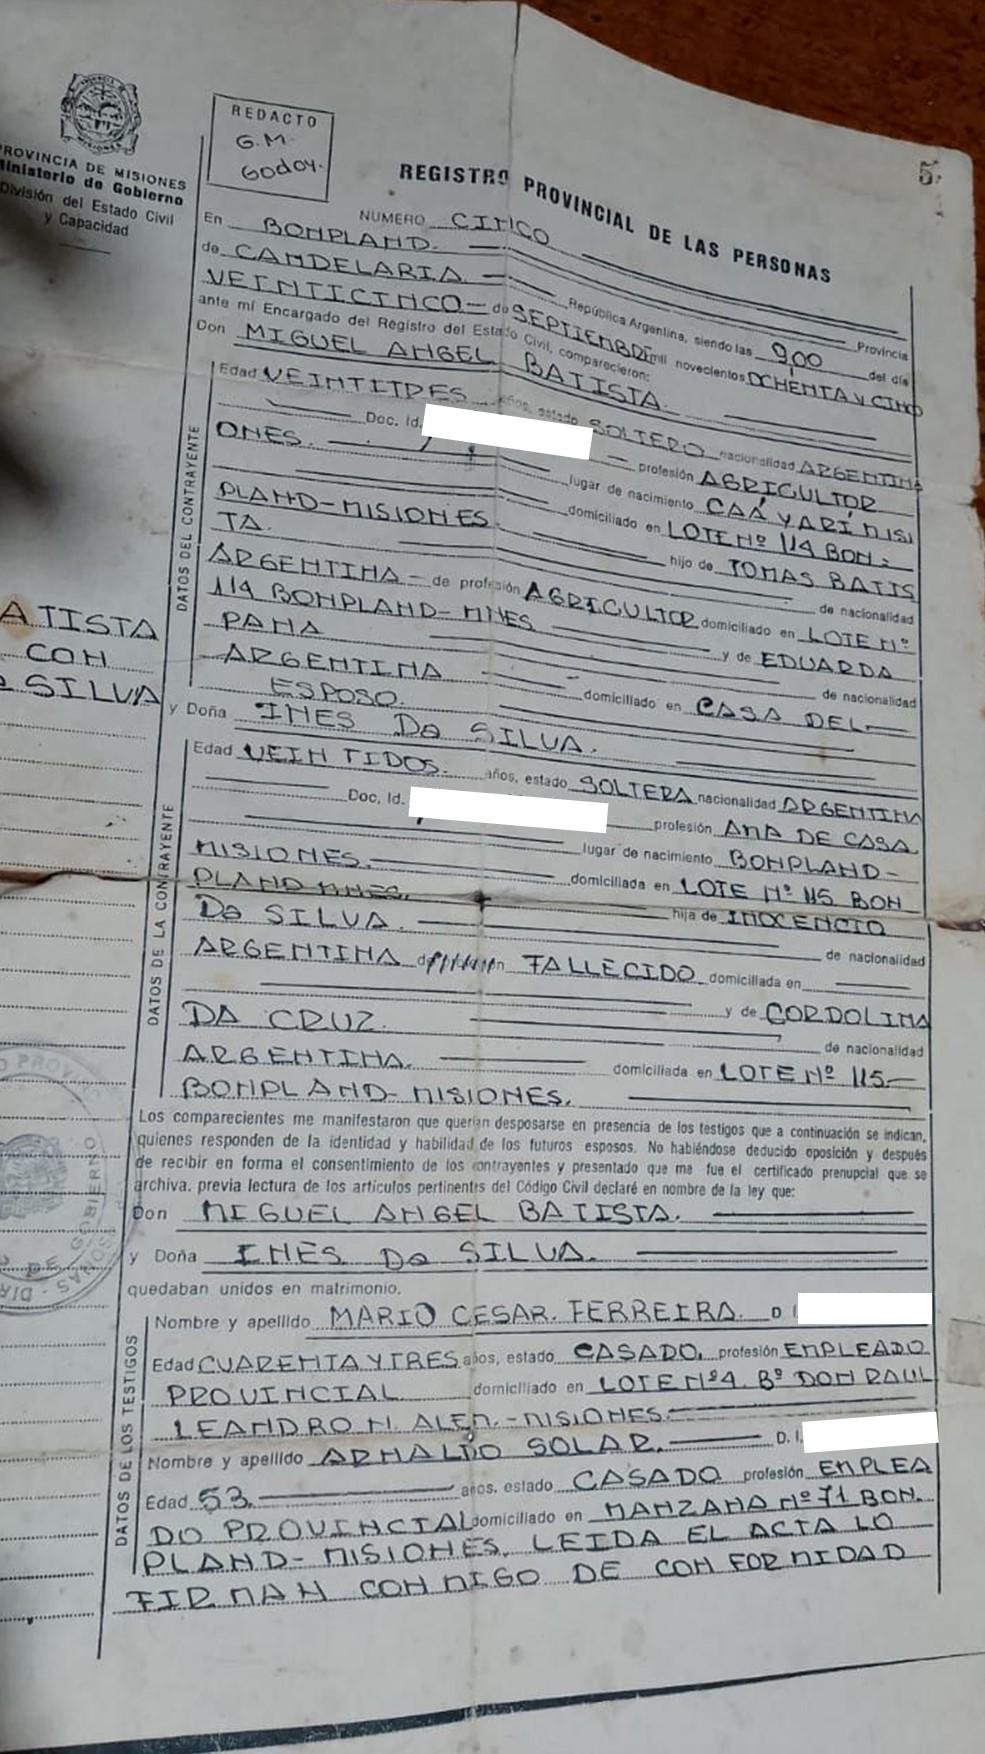 PROVINCIA DE MISIONES
Ministerio de Gobierno
División del Estado Civil
y Capacidad
REDACTO
G.M.
Godoy.
5
REGISTRO PROVINCIAL DE LAS PERSONAS
NUMERO CINCO
En BONPLAND. Provincia
de CANDELARIA República Argentina, siendo las 9,00 del día
VEINTICINCO de SEPTIEMBRE mil novecientos OCHENTA Y CINCO
ante mí Encargado del Registro del Estado Civil, comparecieron:
Don MIGUEL ANGEL BATISTA.
DATOS DEL CONTRAYENTE
Edad VEINTITRES años, estado SOLTERO nacionalidad ARGENTINA
Doc. Id. profesión AGRICULTOR
lugar de nacimiento CAÁ YARÍ MISI
ONES. domiciliado en LOTE Nº 114 BON-
PLAND-MISIONES hijo de TOMAS BATIS
TA. de nacionalidad
ARGENTINA - de profesión AGRICULTOR domiciliado en LOTE Nº
114 BONPLAND-MNES y de EDUARDA
de nacionalidad
ARGENTINA domiciliado en CASA DEL
ESPOSO.
y Doña INES Da SILVA.
DATOS DE LA CONTRAYENTE
Edad VEINTIDOS. años, estado SOLTERA nacionalidad ARGENTINA
Doc, Id. profesión AMA DE CASA
lugar de nacimiento BONPLAND-
MISIONES. domiciliada en LOTE Nº 115 BON
PLAND MNES. hija de INOCENCIO
Da SILVA. de nacionalidad
ARGENTINA FALLECIDO domiciliada en
y de CORDOLINA
DA CRUZ. de nacionalidad
ARGENTINA. domiciliada en LOTE Nº 115
BONPLAND-MISIONES.
Los comparecientes me manifestaron que querían desposarse en presencia de los testigos que a continuación se indican,
quienes responden de la identidad y habilidad de los futuros esposos. No habiéndose deducido oposición y después
de recibir en forma el consentimiento de los contrayentes y presentado que me fue el certificado prenupcial que se
archiva. previa lectura de los artículos pertinentes del Código Civil declaré en nombre de la ley que:
Don MIGUEL ANGEL BATISTA.
y Doña INES Da SILVA.
quedaban unidos en matrimonio.
DATOS DE LOS TESTIGOS
Nombre y apellido MARIO CESAR. FERREIRA. D I.
Edad CUARENTA Y TRES años, estado CASADO. profesión EMPLEADO
PROVINCIAL domiciliado en LOTE Nº 4. Bº DON RAUL
LEANDRO N. ALEM.-MISIONES.
Nombre y apellido ARNALDO SOLAR. D. I.
Edad 53. años, estado CASADO profesión EMPLEA
DO PROVINCIAL domiciliado en MANZANA Nº 71 BON.
PLAND-MISIONES. LEIDA EL ACTA LO
FIRMAN CONMIGO DE CONFORMIDAD
ATISTA
CON
SILVA